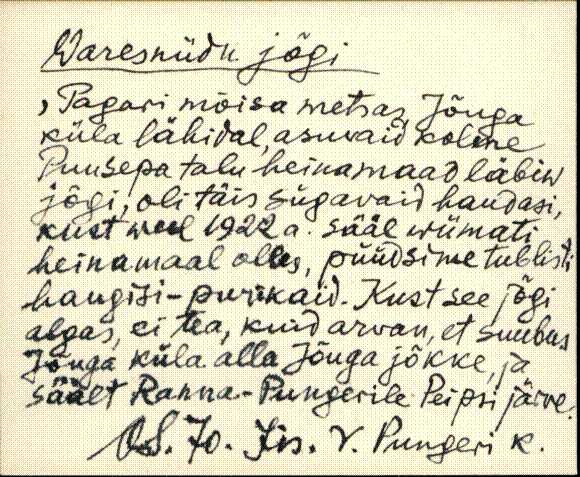 Waresniidu jõgi
, Pagari mõisa metsas, Jõuga
küla lähidal, asuvaid kolme
Puusepa talu heinamaad läbiw
jõgi; oli täis sügavaid haudasi,
kust weel 1922 a. sääl wiimati
heinamaal olles, püüdsime tublisti
haugisi - purikaid. Kust see jõgi
algas, ei tea, kuid arvan, et suubus
Jõuga küla alla Jõuga jõkke, ja
säält Ranna-Pungerile Peipsi järve.
70. Jis. V. Pungeri k.